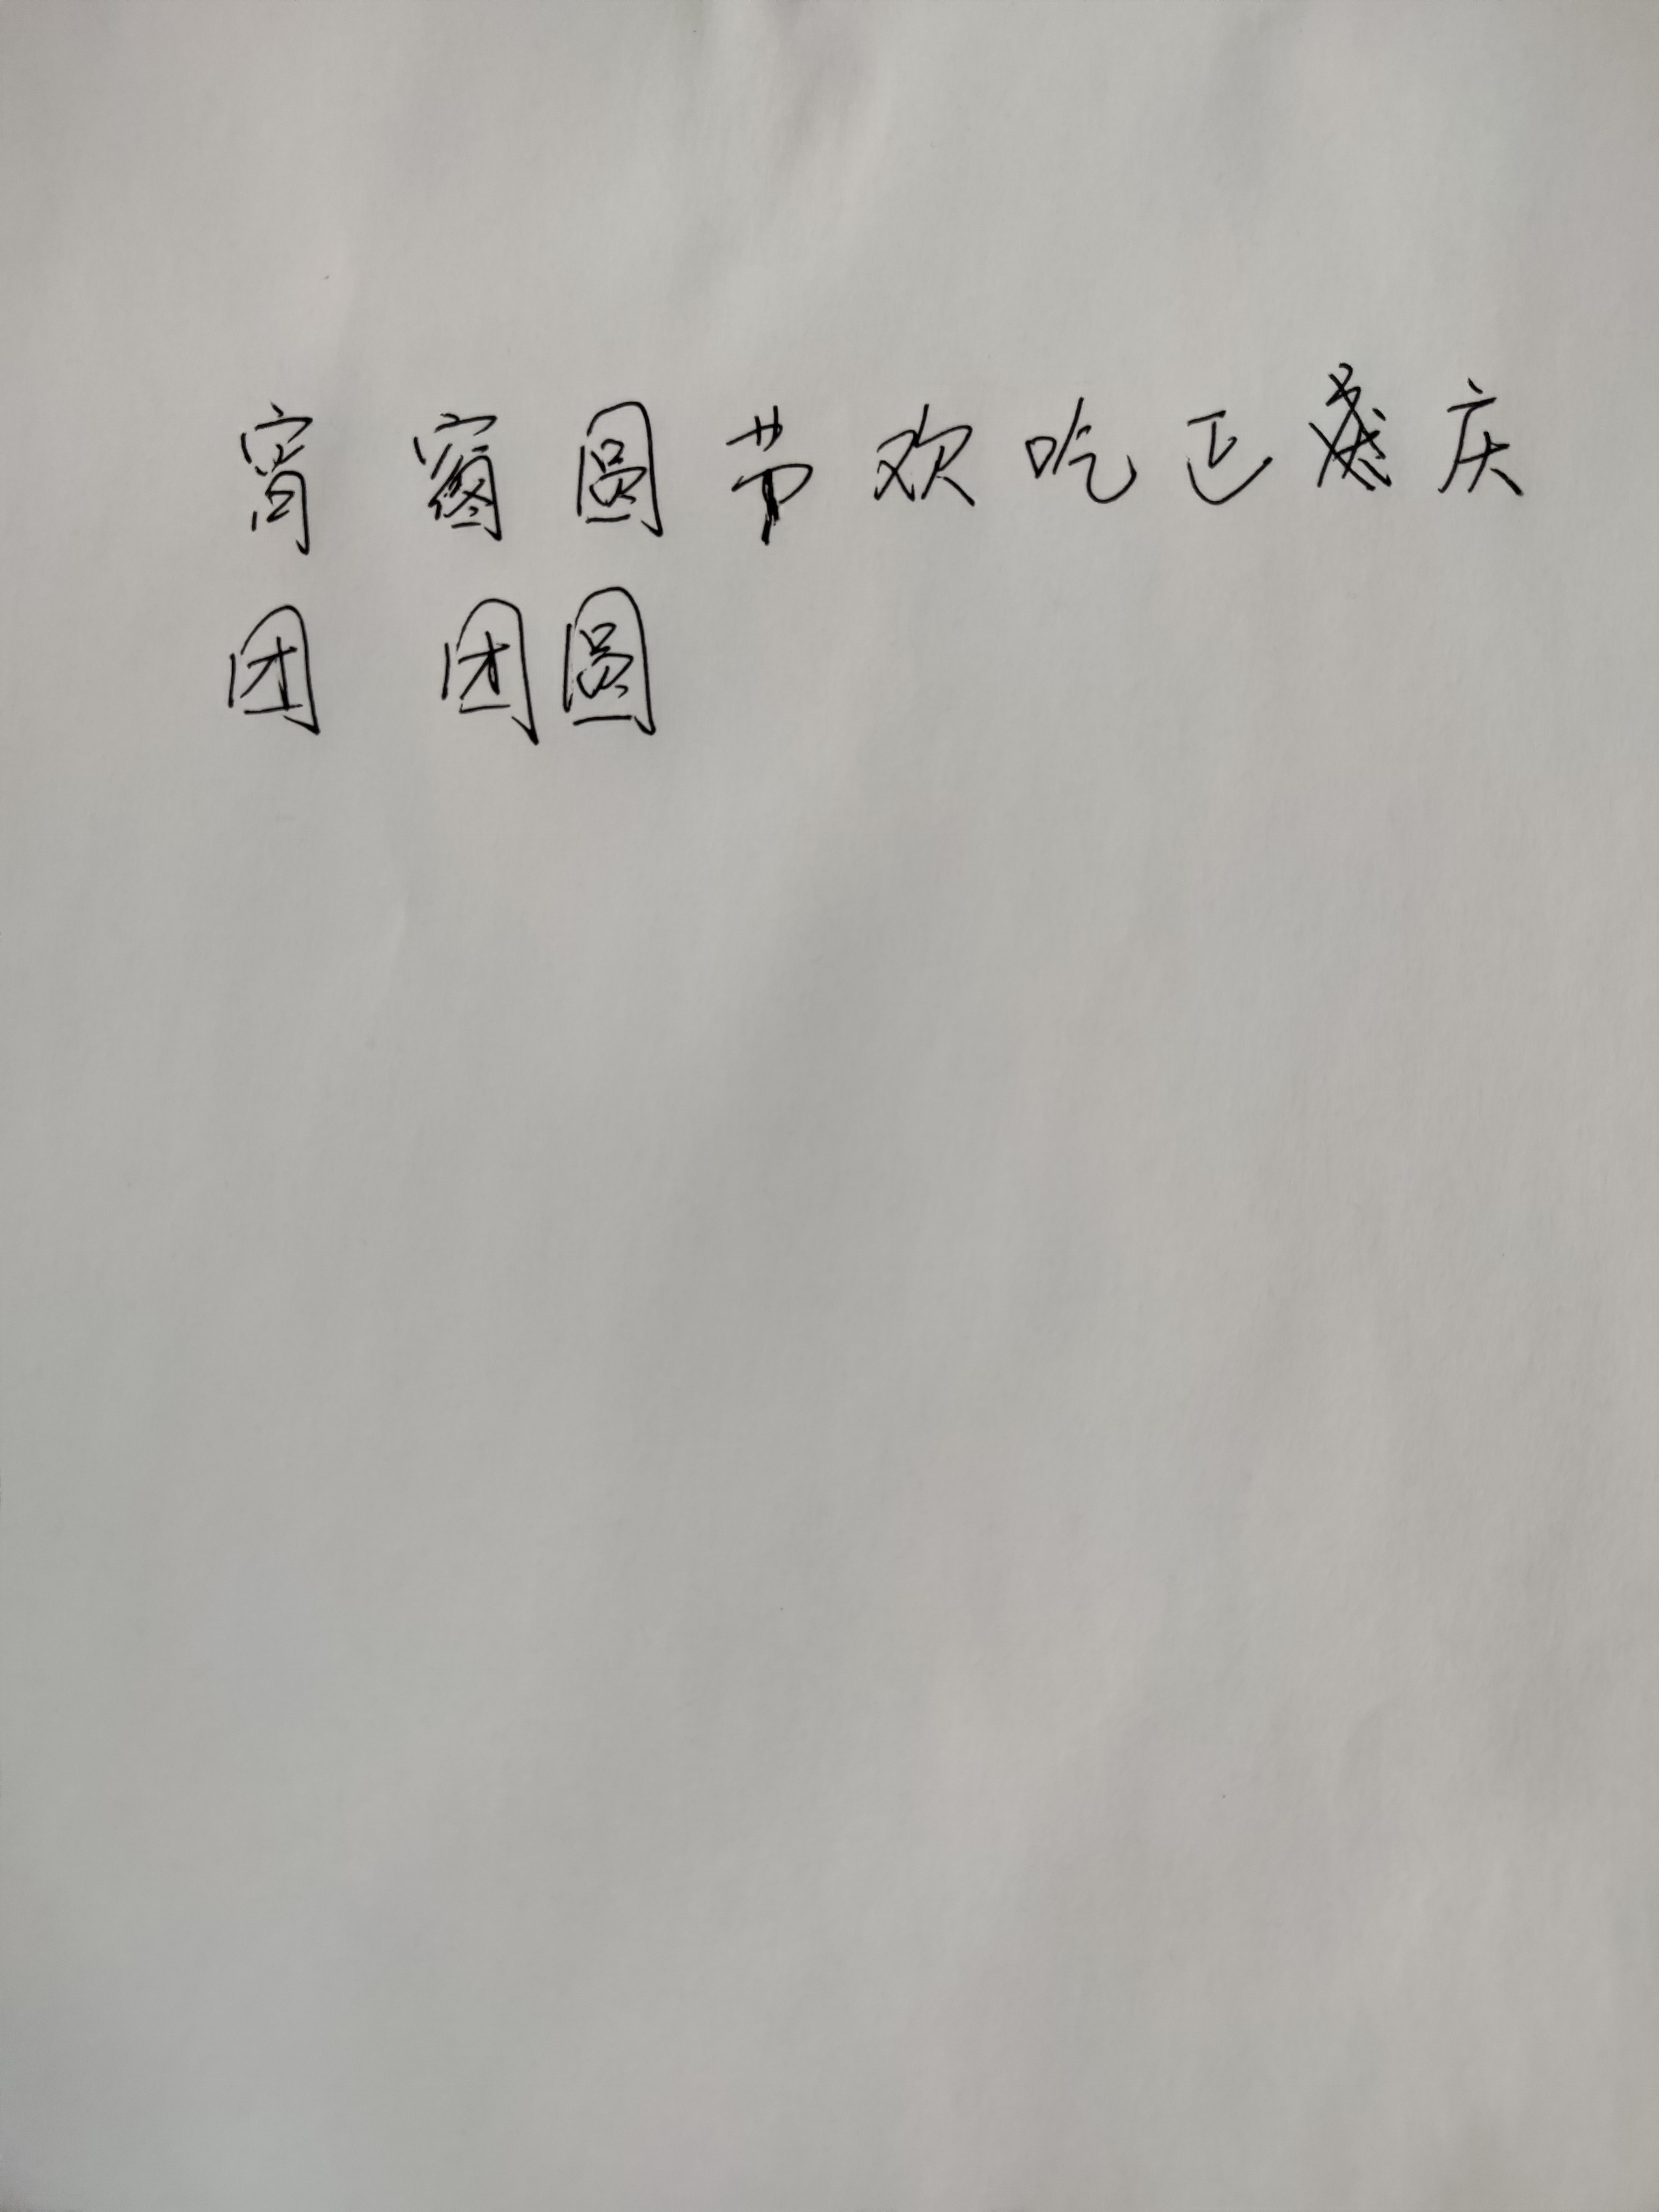 宵 圆节欢吃正庆
团 团圆